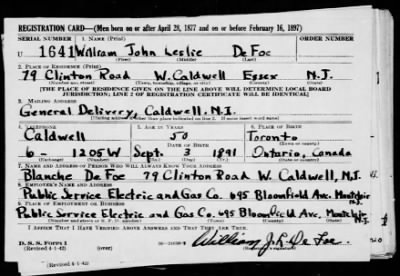 REGISTRATION CARD—(Men born on or after April 28, 1877 and on or before February 16, 1897)
SERIAL NUMBER 1. NAME (Print)
U 1641 William John Leslie De Foe
(First) (Middle) (Last)
2. PLACE OF RESIDENCE (Print)
79 Clinton Road W. Caldwell Essex N.J.
(Number and street) (Town, township, village, or city) (County) (State)
[THE PLACE OF RESIDENCE GIVEN ON THE LINE ABOVE WILL DETERMINE LOCAL BOARD
JURISDICTION; LINE 2 OF REGISTRATION CERTIFICATE WILL BE IDENTICAL]
3. MAILING ADDRESS
General Delivery, Caldwell, N.J.
[Mailing address if other than place indicated on line 2. If same insert word same]
4. TELEPHONE 5. AGE IN YEARS 6. PLACE OF BIRTH
Caldwell 50 Toronto
DATE OF BIRTH (Town or county)
6- 1205W Sept. 1891 Ontario, Canada
(Exchange) (Number) (Mo.) (Day) (Yr.) (State or country)
7. NAME AND ADDRESS OF PERSON WHO WILL ALWAYS KNOW YOUR ADDRESS
Blanche De Foe 79 Clinton Road W. Caldwell, N.J.
8. EMPLOYER'S NAME AND ADDRESS
Public Service Electric and Gas Co. 695 Bloomfield Ave. Montclair
9. PLACE OF EMPLOYMENT OR BUSINESS
Public Service Electric and Gas Co. 695 Bloomfield Ave. Montclair, N.J.
(Number and street or R. F. D. number) (Town) (County) (State)
I AFFIRM THAT I HAVE VERIFIED ABOVE ANSWERS AND THAT THEY ARE TRUE.
D. S. S. Form 1
(Revised 4-1-42) (over)
William J. L. De Foe
(Revised 4-1-42)